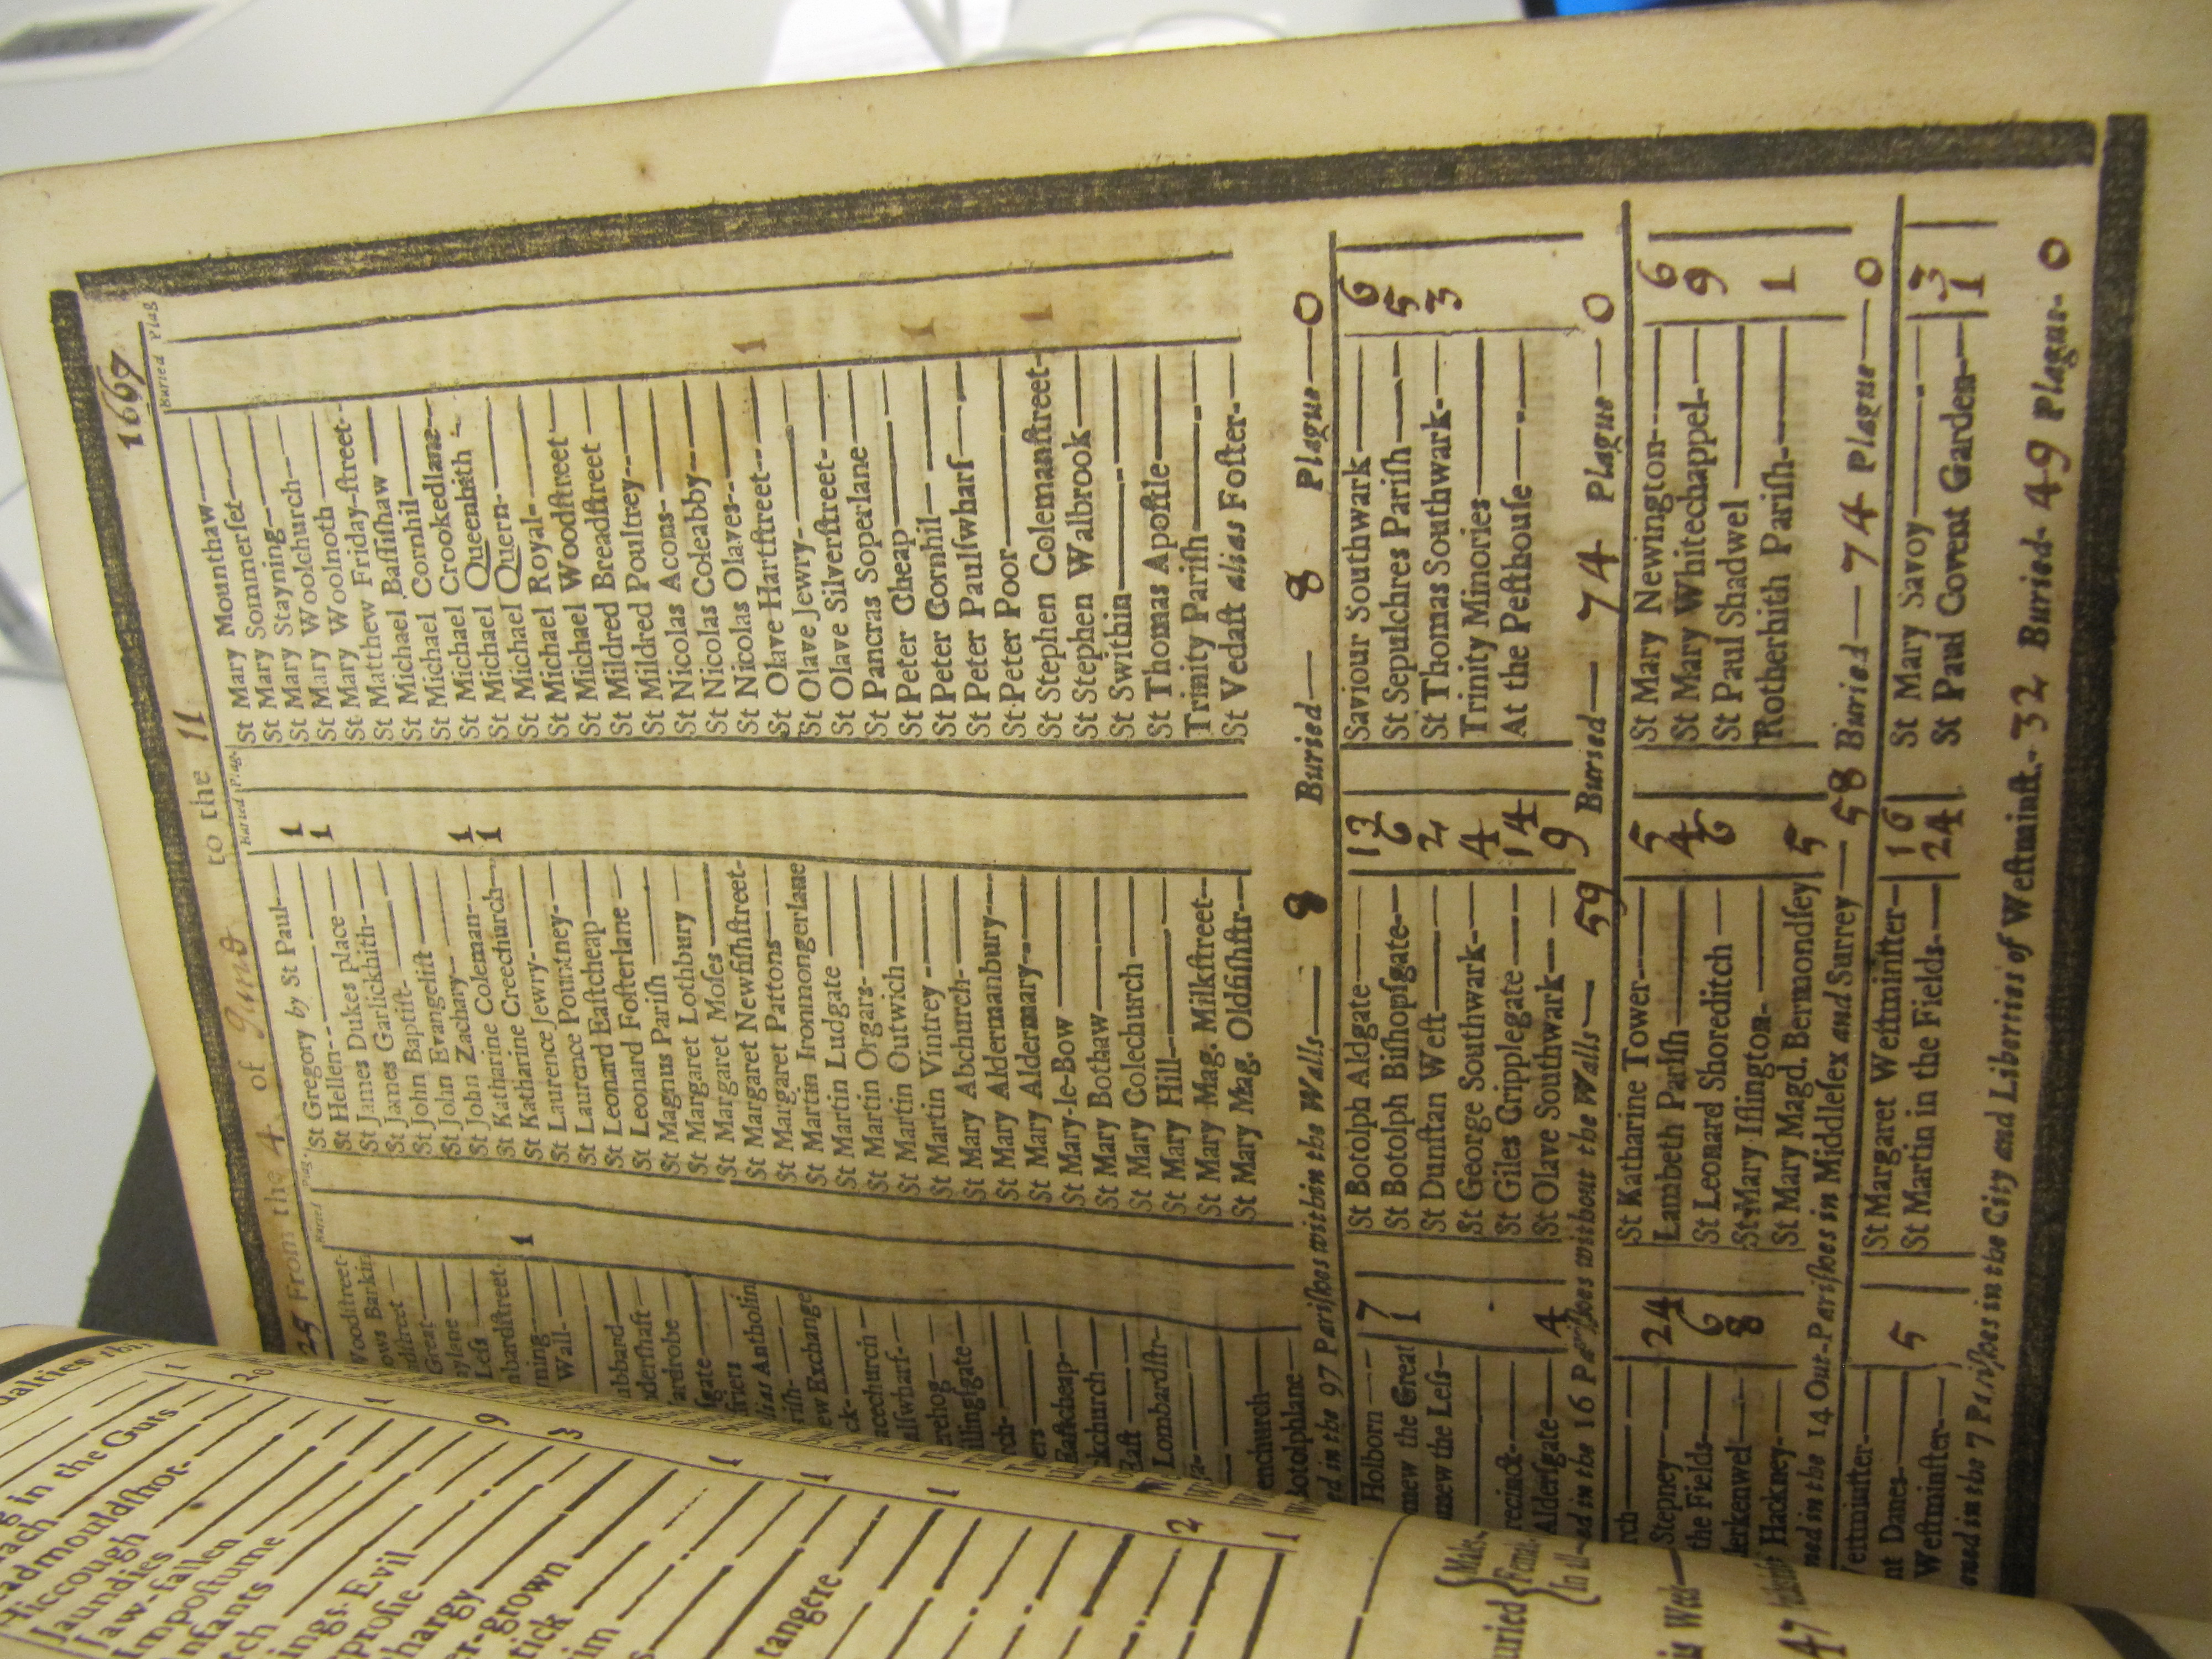 25 From the 4 of June to the 11 1667
Buried Plag.
Buried Plag.
Buried Plag
Woodſtreet-
ows Barkin
Great
aylane
Leſs
mbardſtreet-
ning 1
Wall-
ubbard
derſhaft
ardrobe
ſgate
alias Antholin
riſh-
ew Exchange
ck-
acechurch
ulſwharf-
nrehog
ilingſgate
rch-
Eaſtcheap
ckchurch
Eaſt
Lombardſtr-
enchurch
Botolphlane
St Gregory by St Paul 1
St Hellen 1
St James Dukes place
St James Garlickhith
St John Baptiſt
St John Evangeliſt
St John Zachary 1
St Katharine Coleman 1
St Katharine Creechurch
St Katharine Jewry
St Laurence Jewry
St Laurence Pountney
St Leonard Eaſtcheap
St Leonard Foſterlane
St Magnus Pariſh
St Margaret Lothbury
St Margaret Moſes
St Margaret Newfiſhſtreet
St Margaret Pattons
St Martin Ironmongerlane
St Martin Ludgate
St Martin Orgars
St Martin Outwich
St Martin Vintrey
St Mary Abchurch
St Mary Aldermanbury
St Mary Aldermary
St Mary-le-Bow
St Mary Bothaw
St Mary Colechurch
St Mary Hill
St Mary Mag. Milkſtreet
St Mary Mag. Oldfiſhſtr
St Mary Mounthaw
St Mary Sommerſet
St Mary Stayning
St Mary Woolchurch
St Mary Woolnoth
St Matthew Friday-ſtreet
St Michael Baſſiſhaw
St Michael Cornhil
St Michael Crookedlane
St Michael Queenhith
St Michael Quern
St Michael Royal
St Michael Woodſtreet
St Mildred Breadſtreet
St Mildred Poultrey
St Nicolas Acons
St Nicolas Coleabby
St Nicolas Olaves
St Olave Hartſtreet 1
St Olave Jewry
St Olave Silverſtreet
St Pancras Soperlane
St Peter Cheap
St Peter Cornhil 1
St Peter Paulſwharf
St Peter Poor
St Stephen Colemanſtreet 1
St Stephen Walbrook
St Swithin
St Thomas Apoſtle
Trinity Pariſh
St Vedaſt alias Foſter
ed in the 97 Pariſhes within the Walls 8 Buried 8 Plague 0
Holborn 7
mew the Great 1
mew the Leſs
recinct
Alderſgate 4
St Botolph Aldgate 13
St Botolph Biſhopſgate 6
St Dunſtan Weſt 2
St George Southwark 4
St Giles Cripplegate 14
St Olave Southwark 9
Saviour Southwark 6
St Sepulchres Pariſh 5
St Thomas Southwark 3
Trinity Minories
At the Peſthouſe
ed in the 16 Pariſhes without the Walls 59 Buried 74 Plague 0
rch
Stepney 24
the Fields 6
lerkenwel 8
Hackney
St Katharine Tower 5
Lambeth Pariſh 4
St Leonard Shoreditch 6
St Mary Iſlington
St Mary Magd. Bermondſey 5
St Mary Newington 6
St Mary Whitechappel 9
St Paul Shadwel
Rotherhith Pariſh 1
ned in the 14 Out-Pariſhes in Middleſex and Surrey 58 Buried 74 Plague 0
Weſtminſter
nt Danes 5
Weſtminſter
St Margaret Weſtminſter 16
St Martin in the Fields 24
St Mary Savoy 3
St Paul Covent Garden 1
ened in the 7 Pariſhes in the City and Liberties of Weſtminſt. 32 Buried 49 Plague 0
ualties this
g in the Guts
ach
eadmouldſhot
Hiccough
Jaundies
Jaw-fallen
Impoſtume
Infants
tch
ings Evil
eproſie
thargy
er-grown
tick
im
tangere
uried
Males
Femal
In all
is Week
47